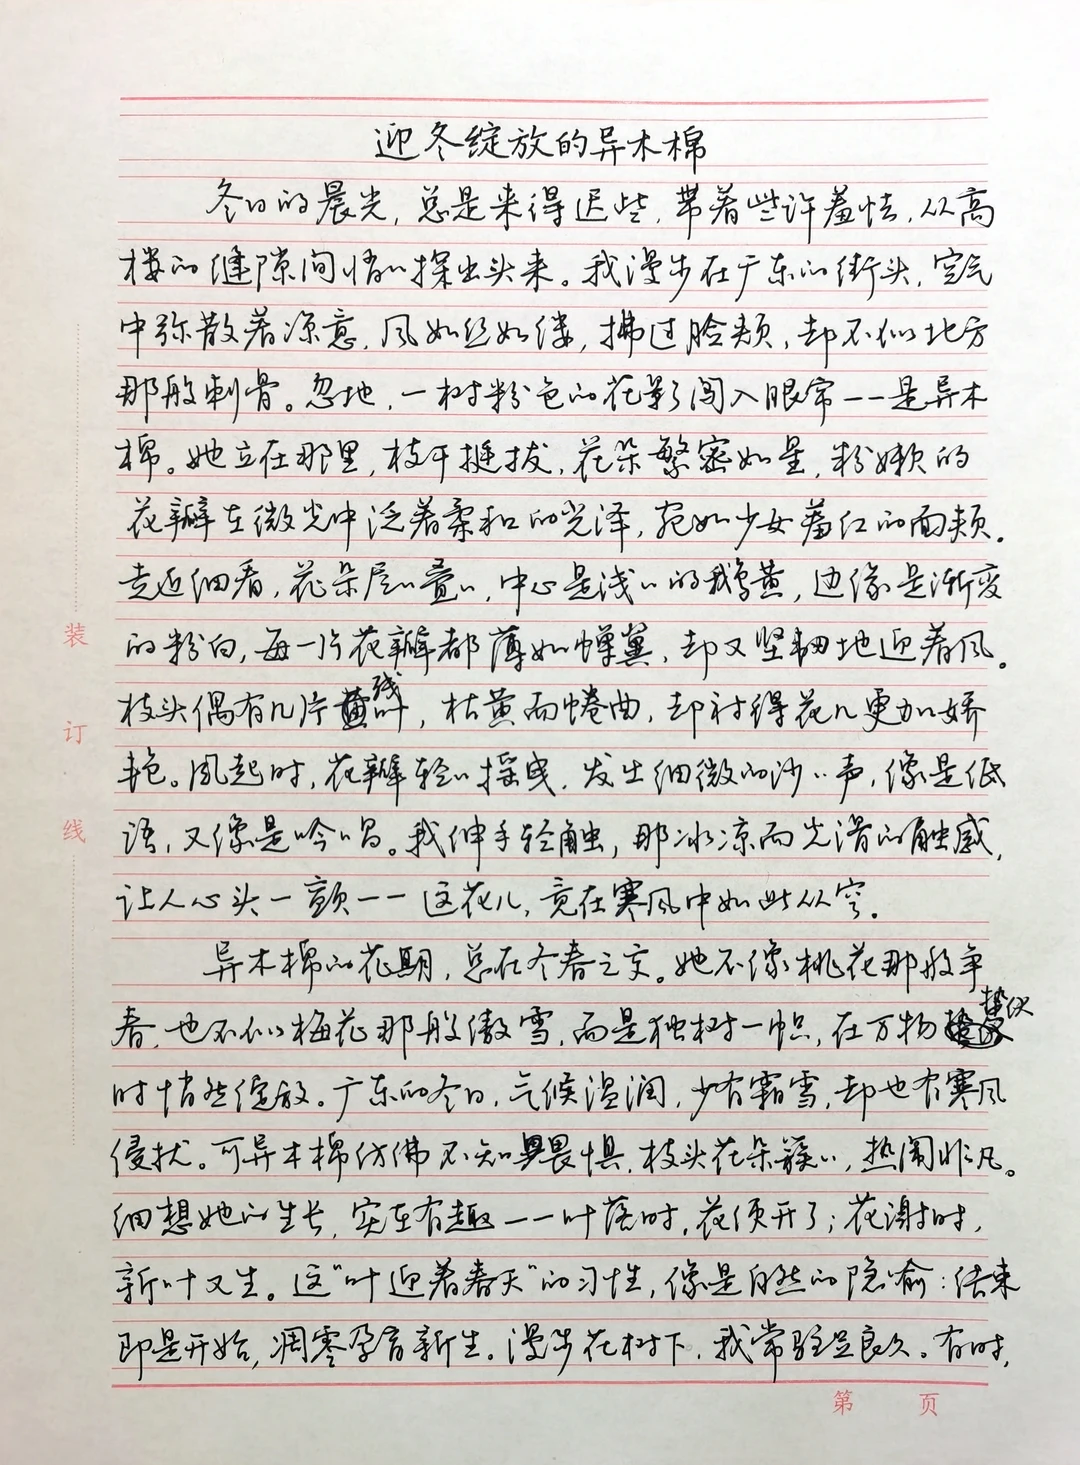 迎冬绽放的异木棉
冬日的晨光，总是来得迟些，带着些许羞怯，从高
楼的缝隙间悄悄探出头来。我漫步在广东的街头，空气
中弥散着凉意，风如丝如缕，拂过脸颊，却不似北方
那般刺骨。忽地，一树粉色的花影闯入眼帘——是异木
棉。她立在那里，枝干挺拔，花朵繁密如星，粉嫩的
花瓣在微光中泛着柔和的光泽，宛如少女羞红的面颊。
走近细看，花朵层层叠叠，中心是浅浅的鹅黄，边缘是渐变
的粉白，每一片花瓣都薄如蝉翼，却又坚韧地迎着风。
枝头偶有几片残叶，枯黄而蜷曲，却衬得花儿更加娇
艳。风起时，花瓣轻轻摇曳，发出细微的沙沙声，像是低
语，又像是吟唱。我伸手轻触，那冰凉而光滑的触感，
让人心头一颤——这花儿，竟在寒风中如此从容。
异木棉的花期，总在冬春之交。她不像桃花那般争
春，也不似梅花那般傲雪，而是独树一帜，在万物蛰伏
时悄然绽放。广东的冬日，气候温润，少有霜雪，却也有寒风
侵扰。可异木棉仿佛不知畏惧，枝头花朵簇簇，热闹非凡。
细想她的生长，实在有趣——叶落时，花便开了；花谢时，
新叶又生。这“叶迎着春天”的习性，像是自然的隐喻：结束
即是开始，凋零孕育新生。漫步花树下，我常驻足良久。有时，
装
订
线
第 页